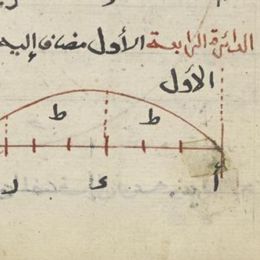 الدائرة الرابعة الأول مضاف إليه
الأول
ط ط
أ